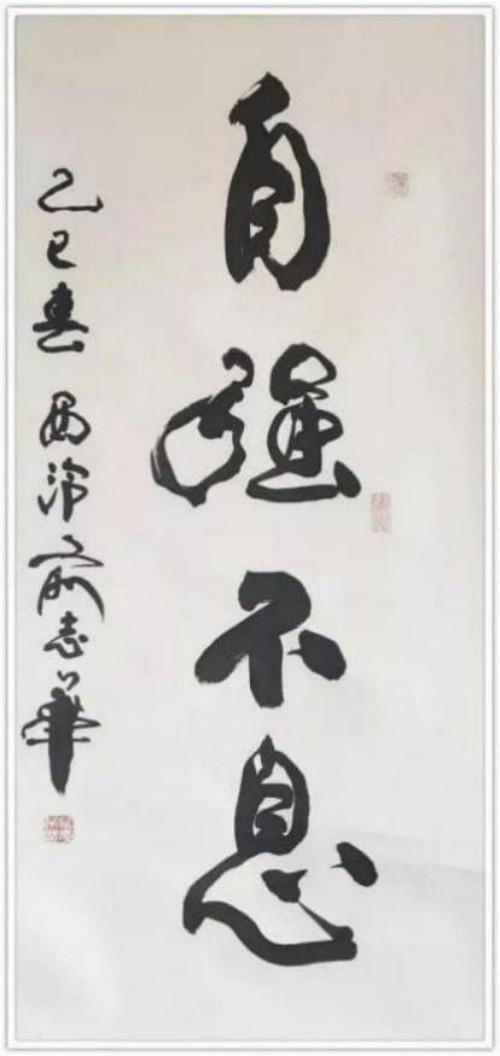 自强不息
乙巳春 西泠俞志华